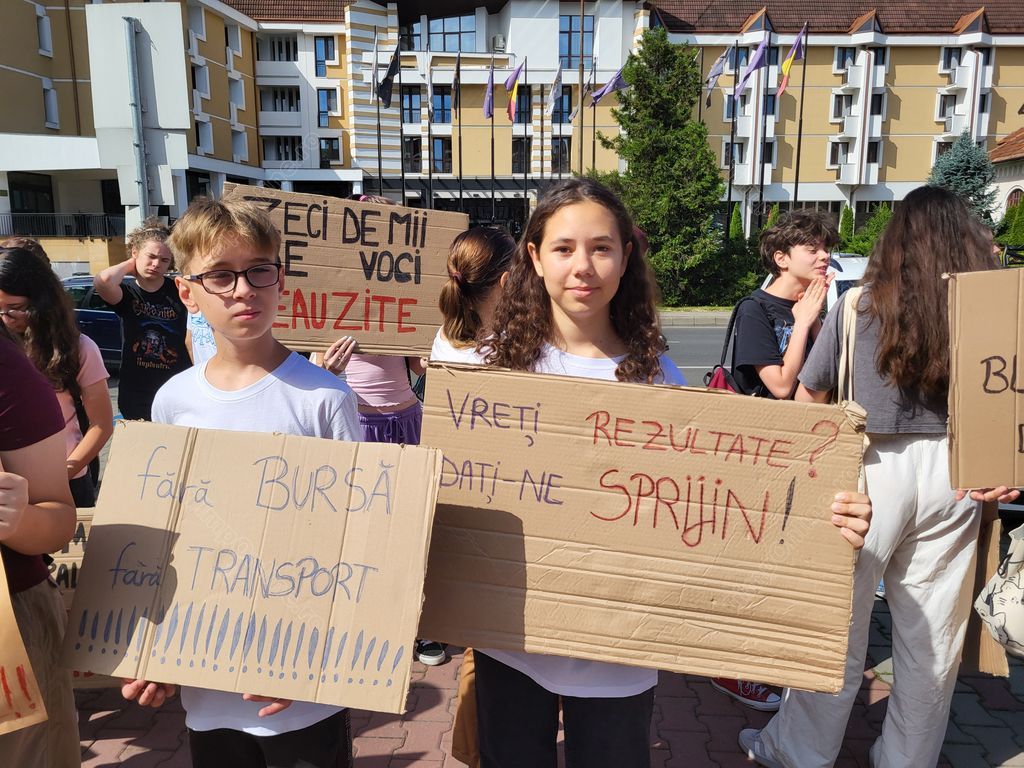 ZECI DE MII
DE VOCI
NEAUZITE
VREȚI REZULTATE?
DAȚI-NE SPRIJIN!
fără BURSĂ
fără TRANSPORT
!!!!!!!!!!!!!!!!!!!!!!
BL